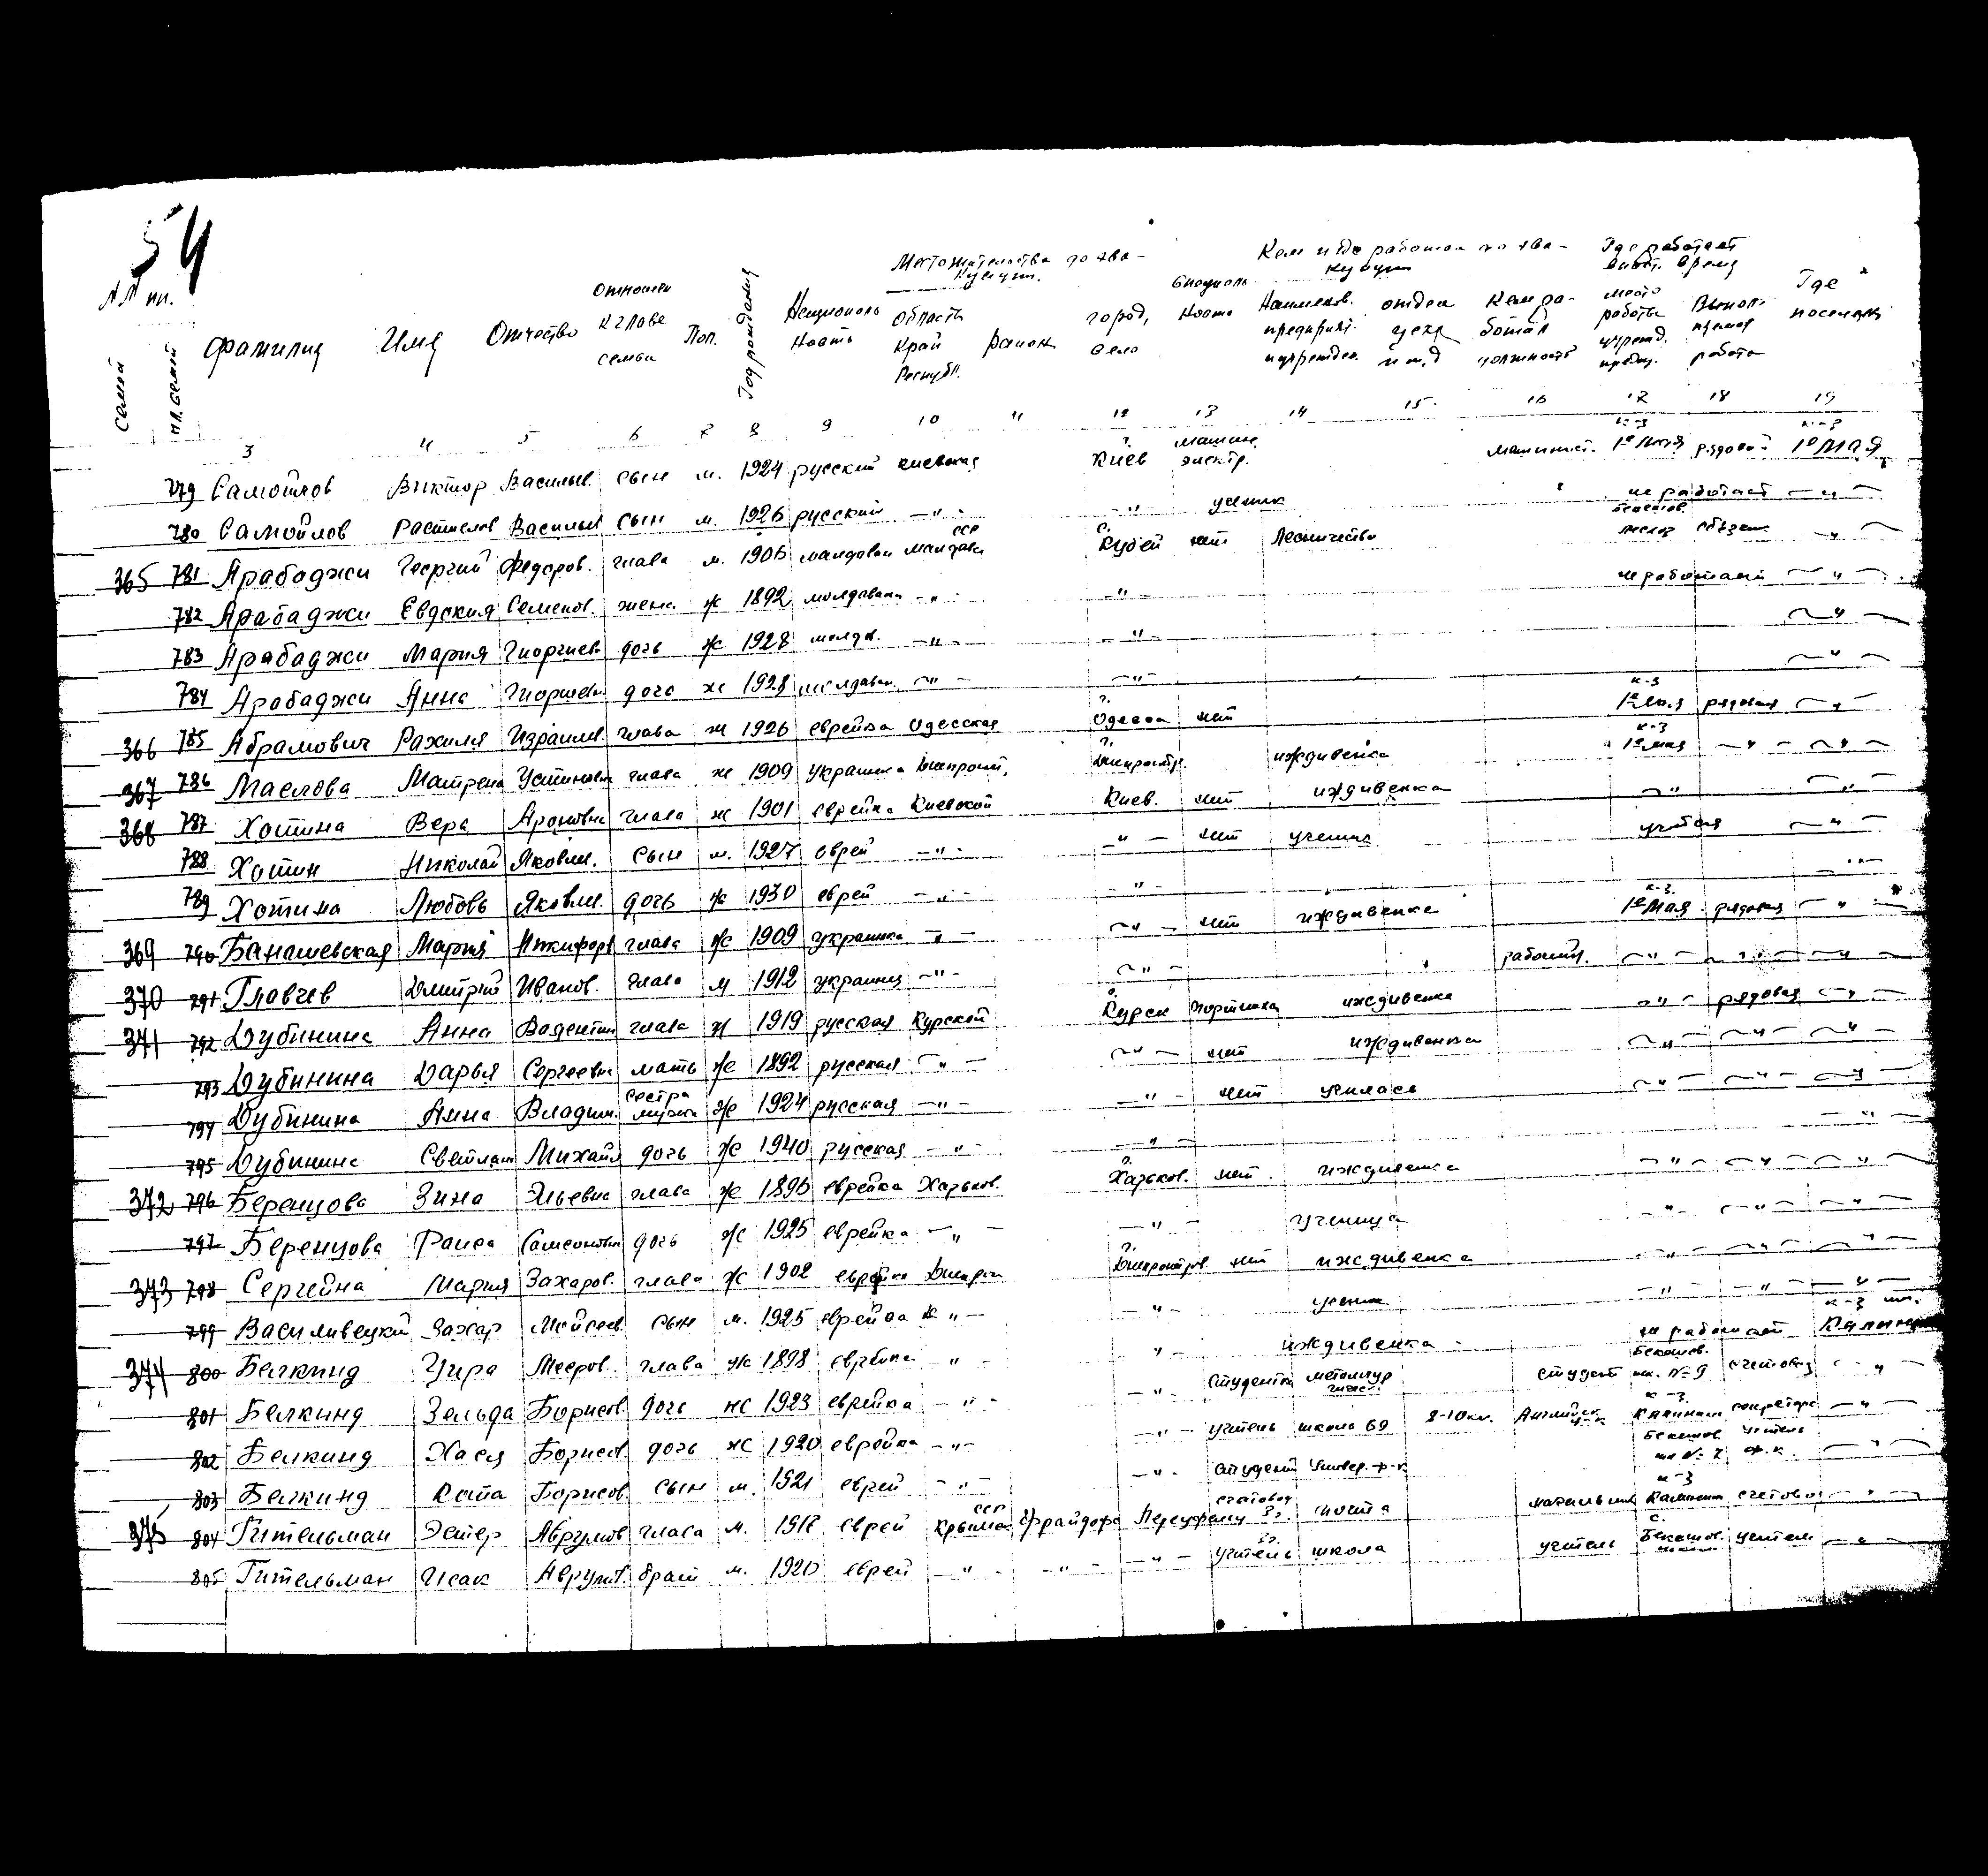 54
№№ пп.
Семей
Чл. семей
Фамилия Имя Отчество Отношен к главе семьи Пол. Год рождения Национальность Местожительства до эвакууции. Область Край Республ. район город, село Специальность Кем и где работал до эвакуции Наименов. предприят. и учрежден. отдел цеха и т.д Кем работал должность Где работает в наст. время место работы учрежд. предпр. Выполняемая работа Где поселен
3 4 5 6 7 8 9 10 11 12 13 14 15 16 17 18 19
779 Самойлов Виктор Васильев. сын м. 1924 русский киевская г. Киев машин. электр. машинист. к-з 1е Мая рядовой к-з 1е МАЯ
780 Самойлов Растислов Васильев сын м. 1926 русский —"— —"— ученик не работает —"—
365 781 Арабаджи Георгий Федоров. глава м. 1906 малдован ССР с. Кубей нет Лесничество Бекетов. лесхоз объезд. —"—
782 Арабаджи Евдокия Семенов. жена ж 1892 молдаванк —"— —"— не работает —"—
783 Арабаджи Мария Гиоргиев дочь ж 1928 молдв. —"— —"— —"—
784 Арабаджи Анна дочь ж 1928 молдаван. —"— —"— —"—
366 785 Абрамович Рахиля Израилев. глава ж 1926 еврейка Одесская г. Одесса нет к-з 1е мая рядовая —"—
367 786 Маслова Матрена Устиновна глава ж 1909 украинка Днепропет. г. Днепропетр. иждивенка к-з 1е мая —"— —"—
368 787 Хотина Вера Ароновна глава ж 1901 еврейка Киевской Киев. нет иждивенка —"— —"—
788 Хотин Николай Яковлев. сын м. 1927 еврей —"— —"— нет ученик учится —"—
789 Хотина Любовь Яковлев. дочь ж 1930 еврей —"— —"— —"—
369 790 Банашевская Мария Никифоров глава ж 1909 украинка —"— —"— нет иждивенка к-з 1е Мая рядовая —"—
370 791 Главчев Дмитрий Иванов. глава м 1912 украинец —"— —"— рабочий. —"— —"— —"—
371 792 Дубинина Анна Валентин глава ж 1919 русская Курской г. Курск портниха иждивенка —"— рядовая —"—
793 Дубинина Дарья Сергеевна мать ж 1892 русская —"— —"— нет иждивенка —"— —"— —"—
794 Дубинина Анна Владим. сестра мужа ж 1924 русская —"— —"— нет училась —"— —"— —"—
795 Дубинина Светлан Михайл дочь ж 1940 русская —"— —"— —"—
372 796 Беренцова Зина Эльевна глава ж 1896 еврейка Харьков. г. Харьков. нет. иждивенка —"— —"— —"—
797 Беренцова Раиса Самсоновна дочь ж 1925 еврейка —"— —"— ученица —"— —"— —"—
373 798 Сергейна Мария Захаров. глава ж 1902 еврейка Днепроп г. Днепропетров нет иждивенка —"— —"— —"—
799 Василивецкий Захар Мойсеев. сын м. 1925 еврейка —"— —"— ученик —"— —"— —"—
374 800 Белкинд Цира Мееров. глава ж 1898 еврейка —"— —"— иждивенка не работает к-з им. Калинина
801 Белкинд Зельда Борисов. дочь ж 1923 еврейка —"— —"— студентка металлур инст. студент Бекетов. шк. №9 счетовод —"—
802 Белкинд Хася Борисов дочь ж 1920 еврейка —"— —"— учитель школа 69 8-10 кл. Английск. к-з Калинина секретарь —"—
803 Белкинд Борисов. сын м. 1921 еврей —"— —"— студент Универ. р-к Бекетов. учитель ф.к. —"—
375 804 Гительман Эстер Аврумов глава м. 1918 еврей ССР Крымск Фрайдорф счетовод почта к-з Калинина счетовод —"—
805 Гительман Исак Аврумов. брат м. 1920 еврей —"— —"— —"— учитель школа учитель с. Бекетов. школа учител —"—